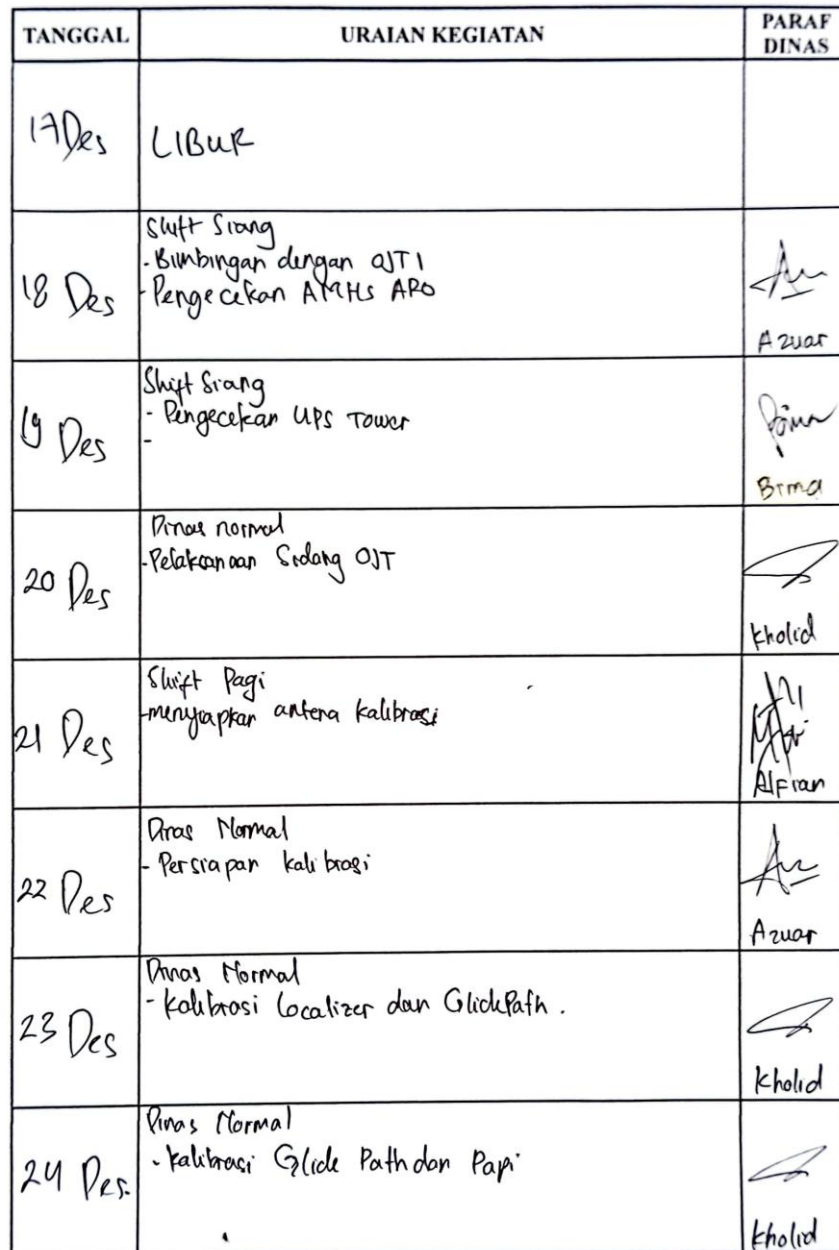 TANGGAL URAIAN KEGIATAN PARAF DINAS
17 Des LIBUR
18 Des
Shift Siang
- Bimbingan dengan OJTI
- Pengecekan AMHS ARO
Azuar
19 Des
Shift Siang
- Pengecekan UPS Tower
-
Bima
20 Des
Dinas normal
- Pelaksanaan Sidang OJT
Kholid
21 Des
Shift Pagi
- menyiapkan antena kalibrasi
Alfian
22 Des
Dinas Normal
- Persiapan kalibrasi
Azuar
23 Des
Dinas Normal
- Kalibrasi Localizer dan GlidePath.
Kholid
24 Des.
Dinas Normal
- Kalibrasi Glide Path dan Papi
Kholid